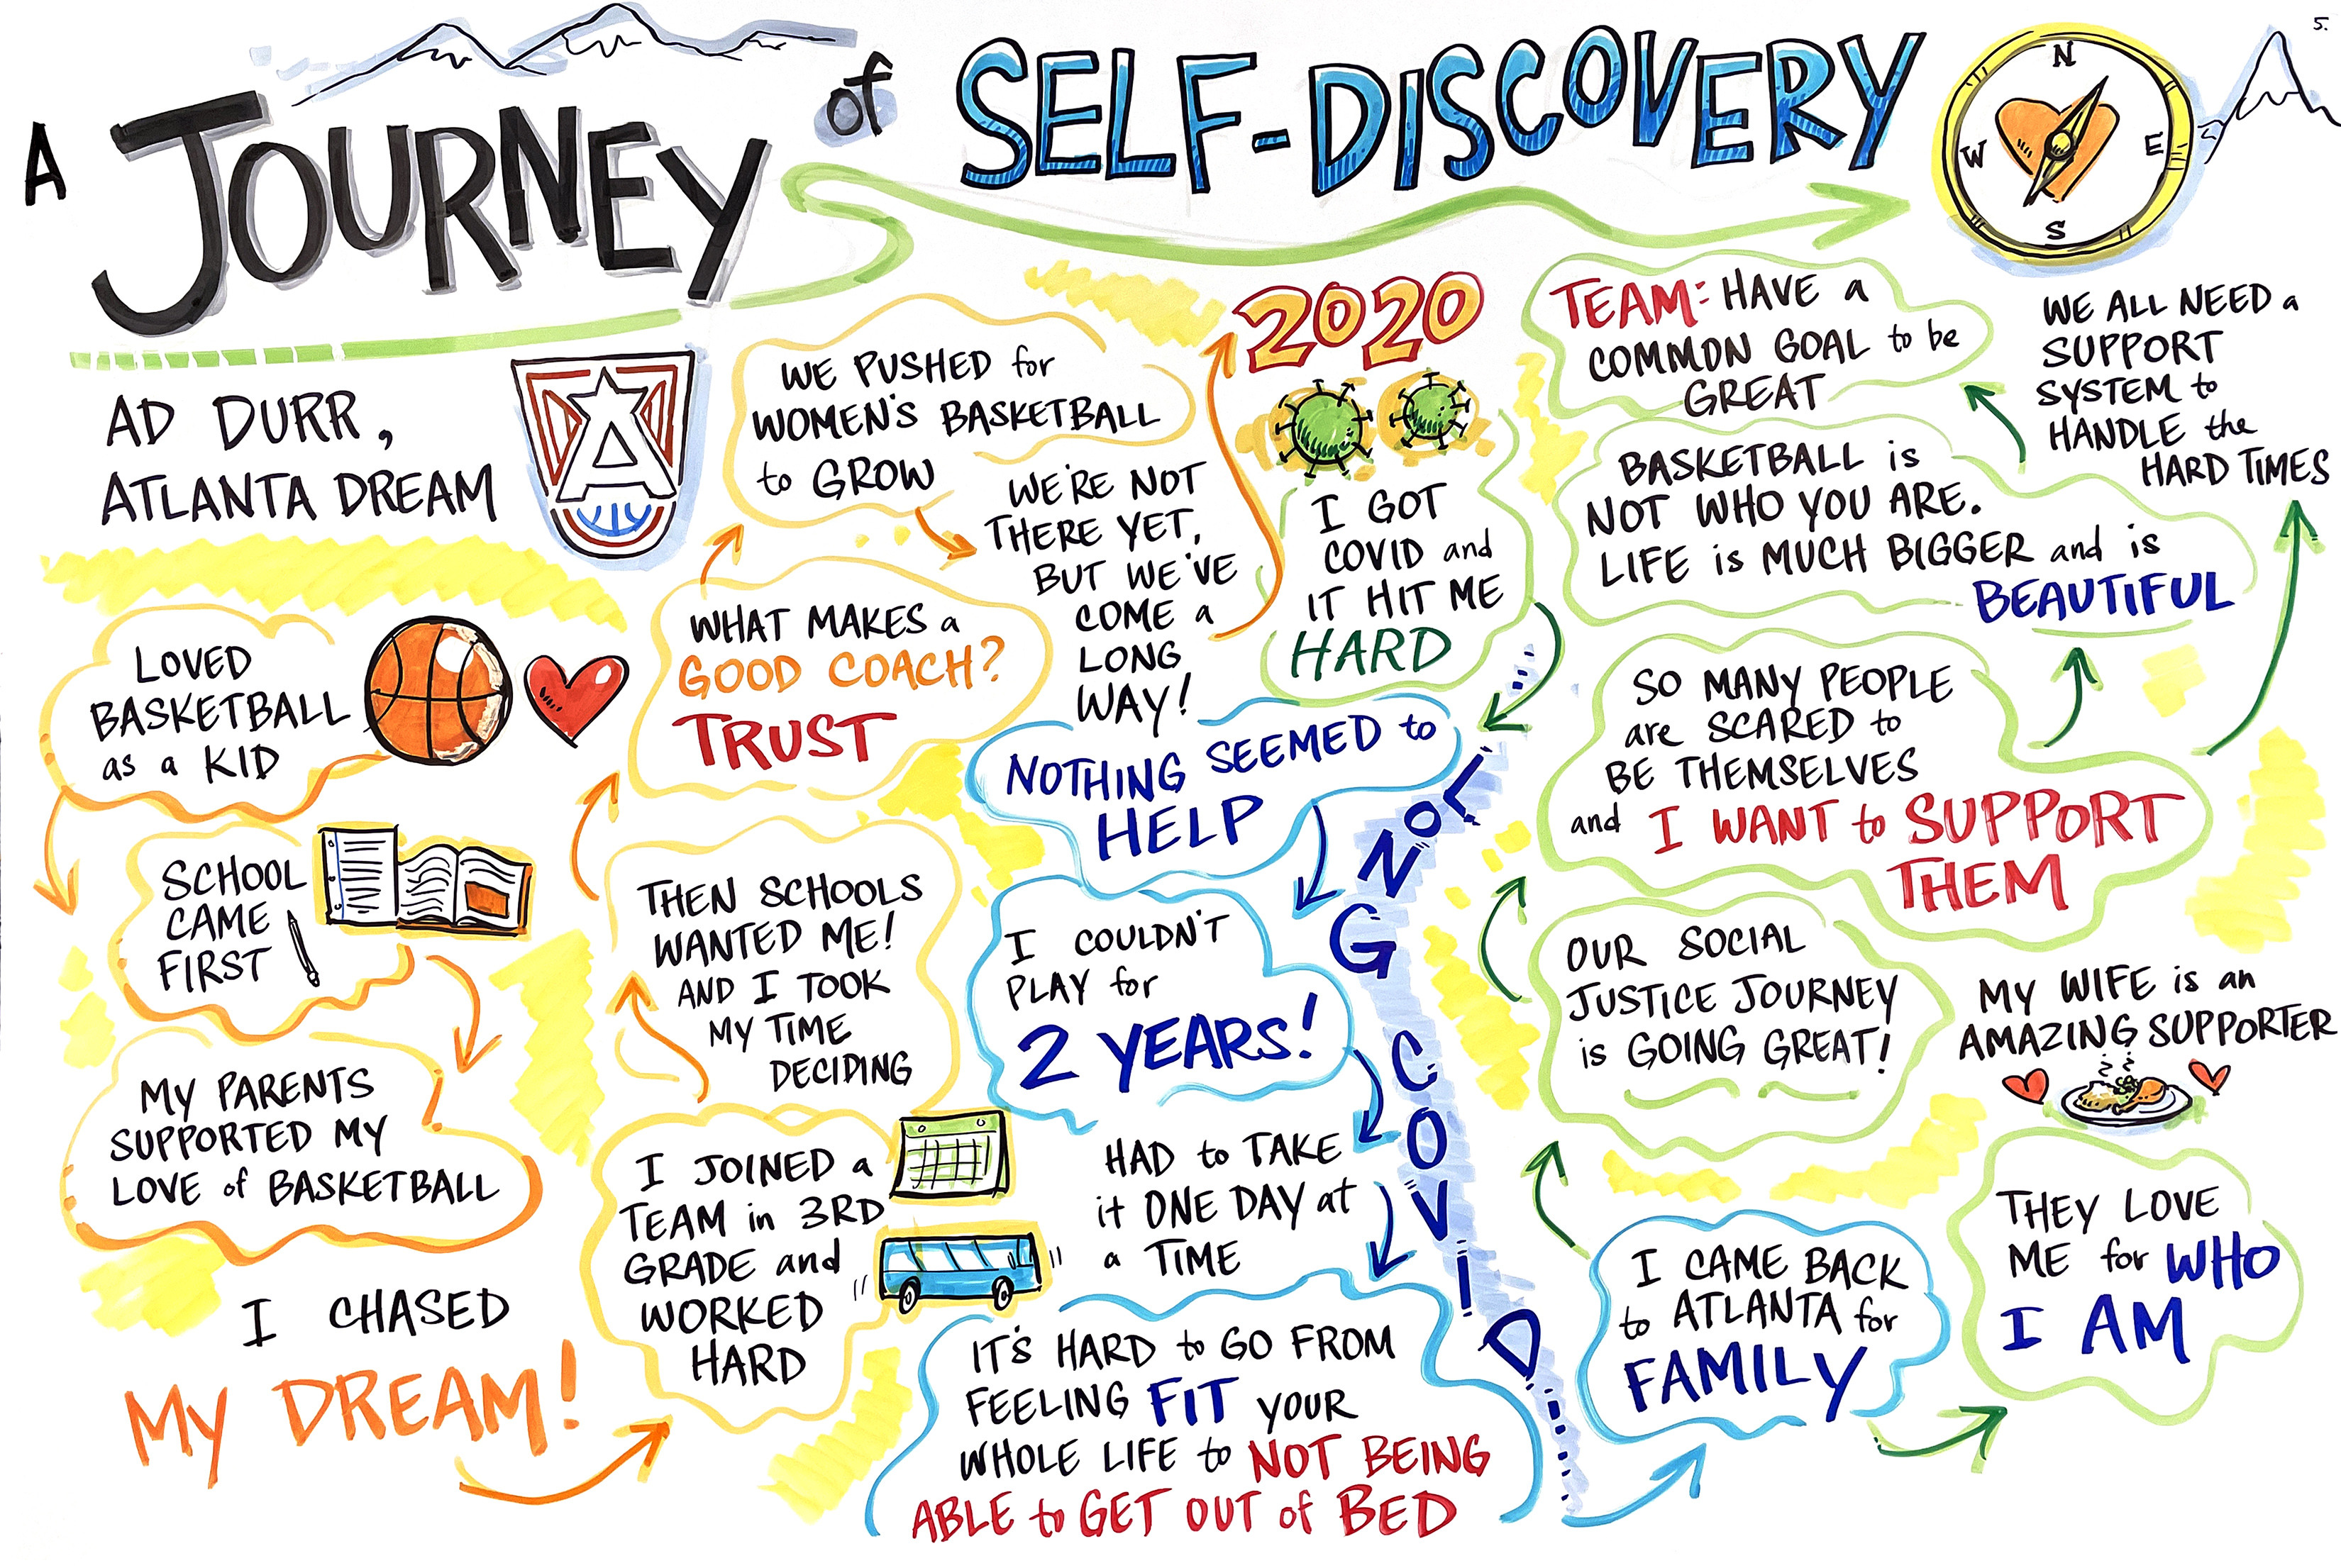 5.
A
JOURNEY
of
SELF-DISCOVERY
N
W
E
S
AD DURR,
ATLANTA DREAM
A
LOVED
BASKETBALL
as a KID
SCHOOL
CAME
FIRST
MY PARENTS
SUPPORTED MY
LOVE of BASKETBALL
I CHASED
MY DREAM!
I JOINED a
TEAM in 3RD
GRADE and
WORKED
HARD
THEN SCHOOLS
WANTED ME!
AND I TOOK
MY TIME
DECIDING
WHAT MAKES a
GOOD COACH?
TRUST
WE PUSHED for
WOMEN'S BASKETBALL
to GROW
WE'RE NOT
THERE YET,
BUT WE'VE
COME a
LONG
WAY!
2020
I GOT
COVID and
IT HIT ME
HARD
LONG COVID
NOTHING SEEMED to
HELP
I COULDN'T
PLAY for
2 YEARS!
HAD to TAKE
it ONE DAY at
a TIME
IT'S HARD to GO FROM
FEELING FIT YOUR
WHOLE LIFE to NOT BEING
ABLE to GET OUT of BED
I CAME BACK
to ATLANTA for
FAMILY
THEY LOVE
ME for WHO
I AM
MY WIFE is an
AMAZING SUPPORTER
OUR SOCIAL
JUSTICE JOURNEY
is GOING GREAT!
SO MANY PEOPLE
are SCARED to
BE THEMSELVES
and I WANT to SUPPORT
THEM
BASKETBALL is
NOT WHO YOU ARE.
LIFE is MUCH BIGGER and is
BEAUTIFUL
TEAM: HAVE a
COMMON GOAL to be
GREAT
WE ALL NEED a
SUPPORT
SYSTEM to
HANDLE the
HARD TIMES